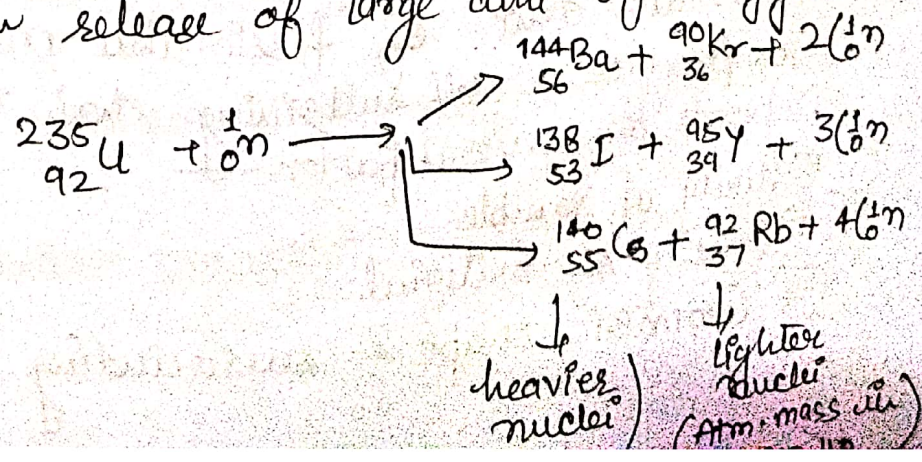 release of large
¹⁴⁴₅₆Ba + ⁹⁰₃₆Kr + 2(¹₀n
²³⁵₉₂U + ¹₀n → ¹³⁸₅₃I + ⁹⁵₃₉Y + 3(¹₀n
¹⁴⁰₅₅Cs + ⁹²₃₇Rb + 4(¹₀n
↓ ↓
heavier nuclei) lighter nuclei
(Atm. mass in)